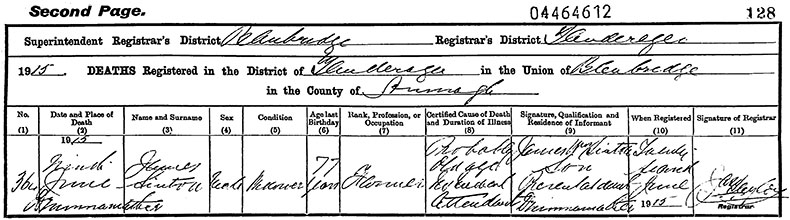 Second Page.
04464612
128
Superintendent Registrar's District Banbridge Registrar's District Tanderagee
1915 DEATHS Registered in the District of Tanderagee in the Union of Banbridge
in the County of Armagh
No.
(1)
Date and Place of
Death
(2)
Name and Surname
(3)
Sex
(4)
Condition
(5)
Age last
Birthday
(6)
Rank, Profession, or
Occupation
(7)
Certified Cause of Death
and Duration of Illness
(8)
Signature, Qualification and
Residence of Informant
(9)
When Registered
(10)
Signature of Registrar
(11)
1915
June
Drumnamether
James
Sinton
Male
77
years
Farmer
Probably
Old age
No medical
Attendant
James Sinton
Son
Present at death
Drumnamether
June
1915
Registrar.